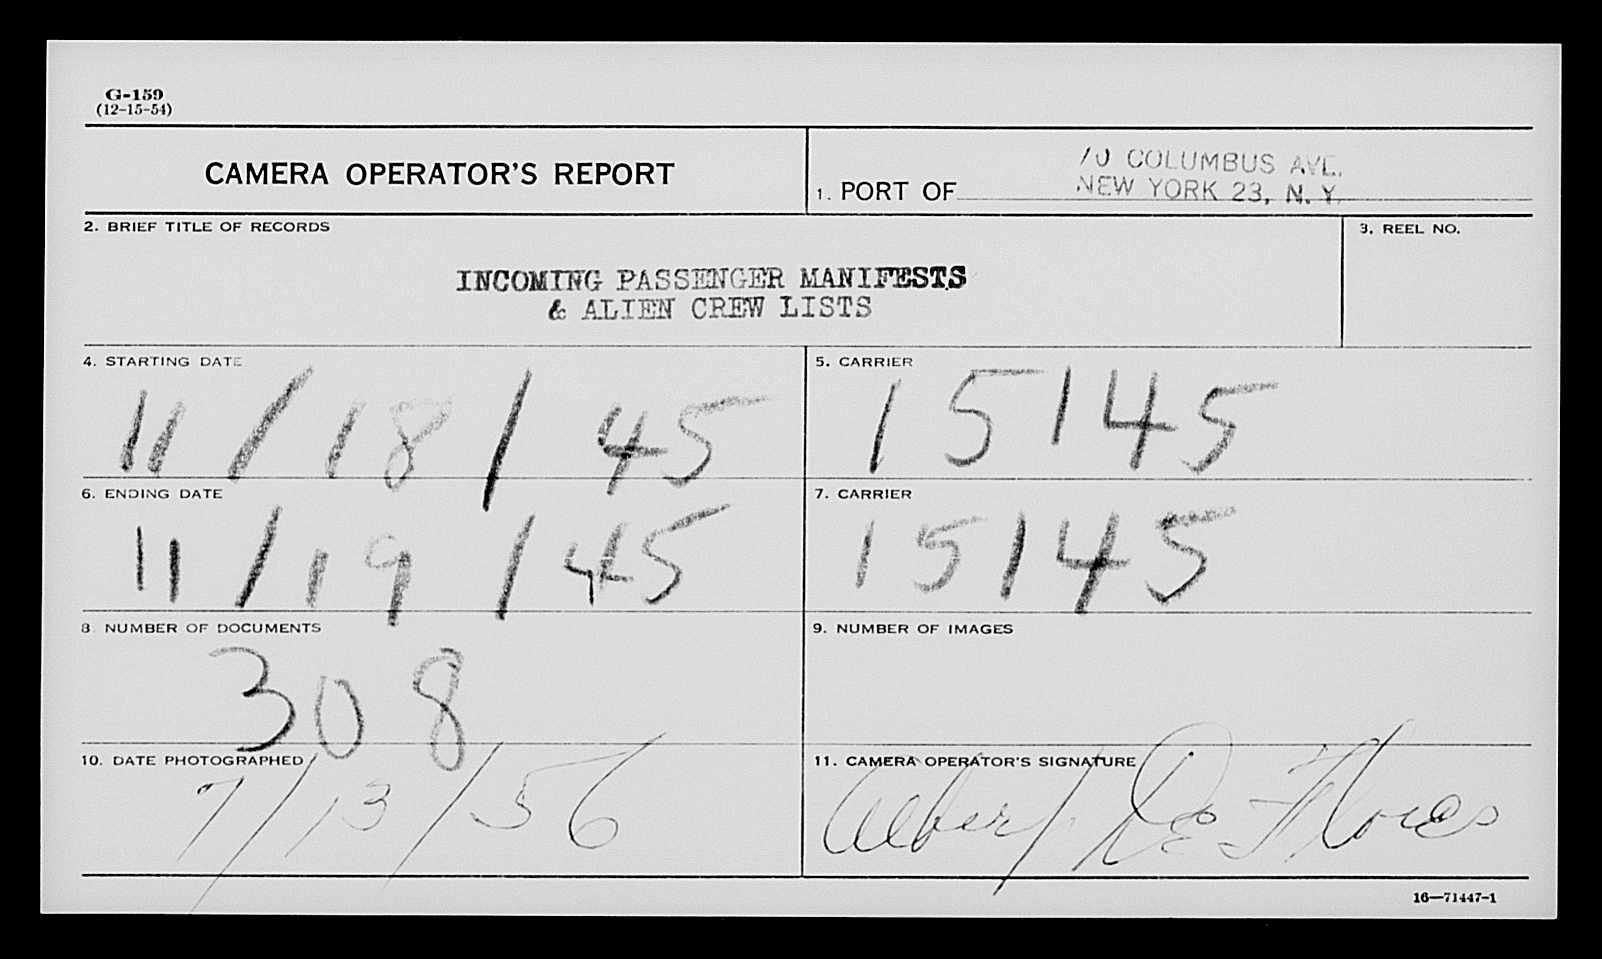 G-159
(12-15-54)
CAMERA OPERATOR'S REPORT
1. PORT OF
70 COLUMBUS AVE.
NEW YORK 23, N. Y.
2. BRIEF TITLE OF RECORDS
3. REEL NO.
INCOMING PASSENGER MANIFESTS
& ALIEN CREW LISTS
4. STARTING DATE
11/18/45
5. CARRIER
15145
6. ENDING DATE
11/19/45
7. CARRIER
15145
8. NUMBER OF DOCUMENTS
308
9. NUMBER OF IMAGES
10. DATE PHOTOGRAPHED
7/13/56
11. CAMERA OPERATOR'S SIGNATURE
Albert De Flores
16—71447-1